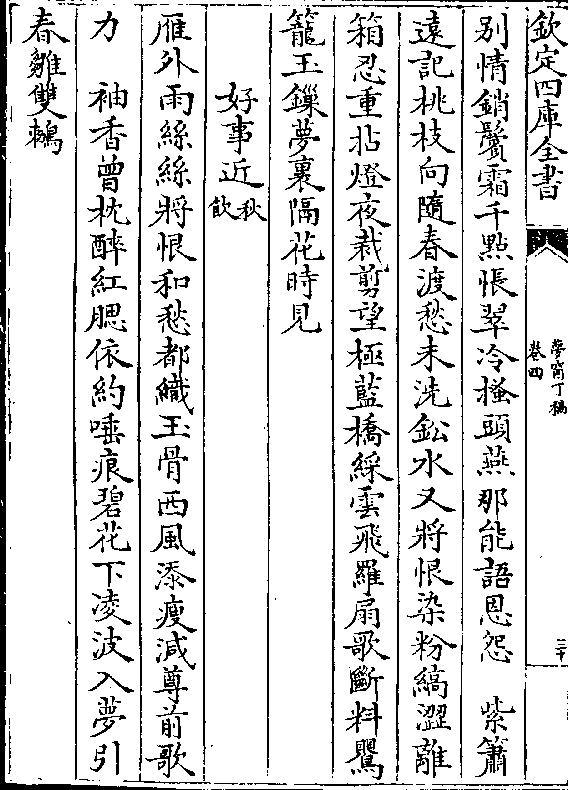 欽定四庫全書
夢窗丁稿
卷四
三十
别情銷鬢霜千點悵翠冷搔頭燕那能語恩怨　紫簫
遠記桃枝向隨春渡愁未洗鈆水又將恨染粉縞澀離
箱忍重拈燈夜裁剪望極藍橋綵雲飛羅扇歌斷料鸎
籠玉鏁夢裏隔花時見
好事近秋飲
雁外雨絲絲將恨和愁都織玉骨西風添瘦減尊前歌
力　袖香曾枕醉紅腮依約唾痕碧花下凌波入夢引
春雛雙鶒